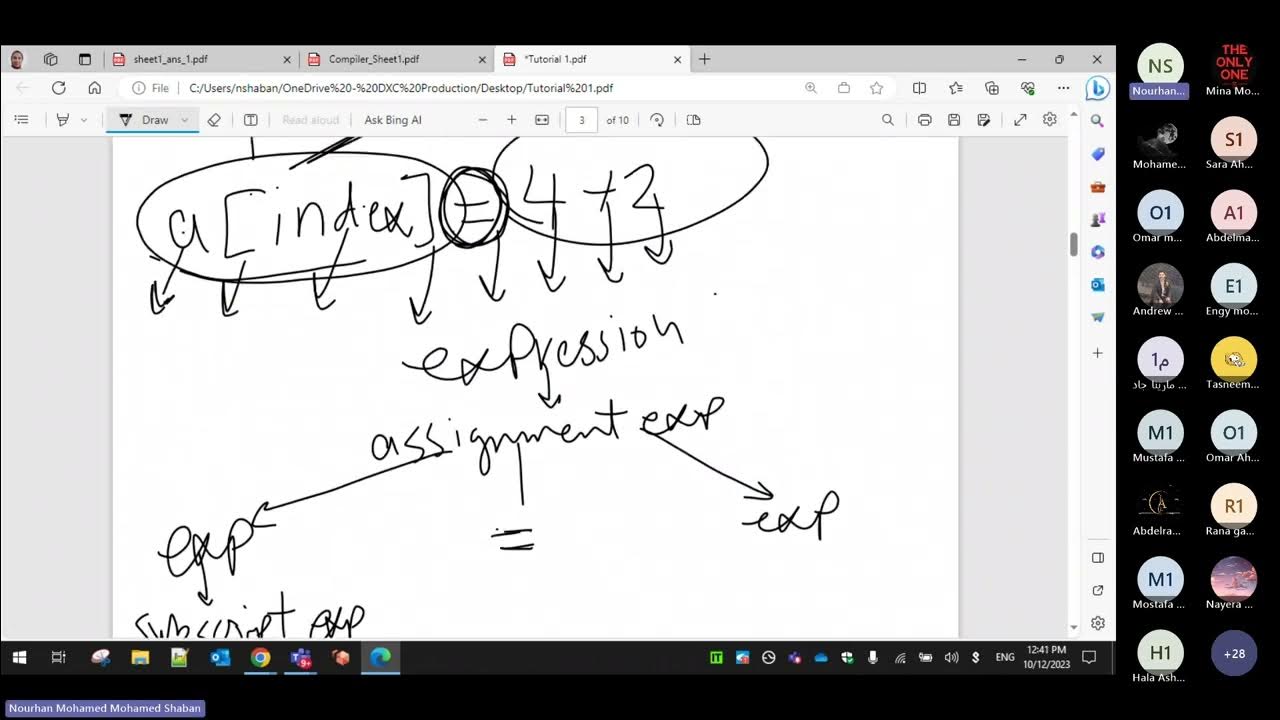 sheet1_ans_1.pdf
Compiler_Sheet1.pdf
*Tutorial 1.pdf
File
C:/Users/nshaban/OneDrive%20-%20DXC%20Production/Desktop/Tutorial%201.pdf
Draw
Read aloud
Ask Bing AI
3
of 10
a[index] = 4+2
expression
assignment exp
exp = exp
subscript exp
NS
Nourhan...
THE
ONLY
ONE
Mina Mo...
Mohame...
S1
Sara Ah...
O1
Omar m...
A1
Abdelma...
Andrew ...
E1
Engy mo...
م1
مارينا جاد ...
Tasneem...
M1
Mustafa ...
O1
Omar Ah...
Abdelra...
R1
Rana ga...
M1
Mostafa ...
Nayera ...
H1
Hala Ash...
+28
9+
ENG
12:41 PM
10/12/2023
Nourhan Mohamed Mohamed Shaban